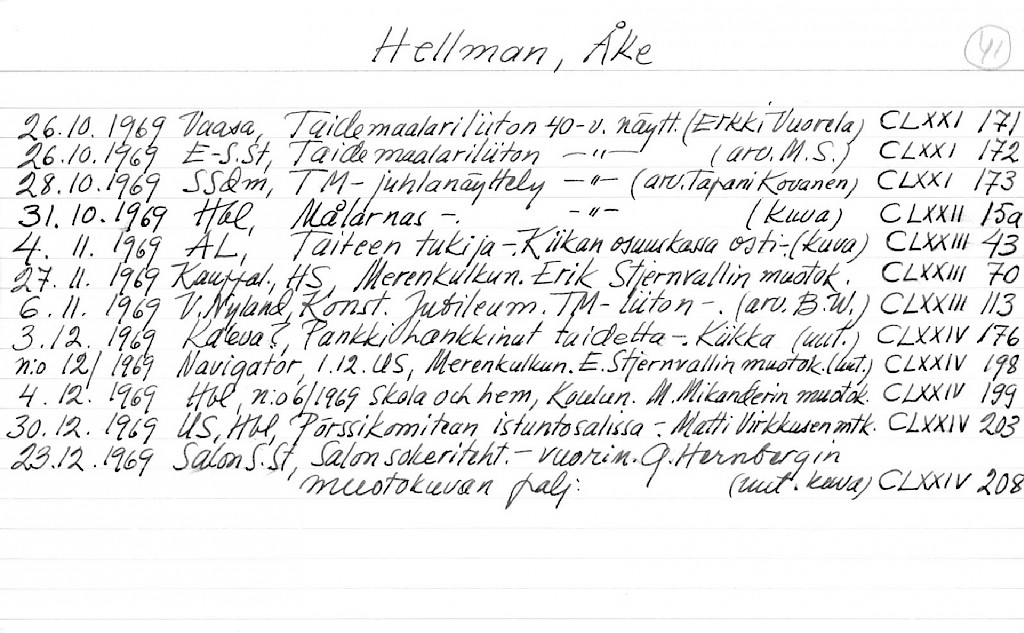 Hellman, Åke 41
26.10.1969 Vaasa, Taidemaalariliiton 40-v. näytt. (Erkki Vuorela) CLXXI 171
26.10.1969 E-S.St, Taidemaalariliiton —"— (arv. M.S.) CLXXI 172
28.10.1969 SS&m, TM-juhlanäyttely —"— (arv. Tapani Kovanen) CLXXI 173
31.10.1969 Hbl, Målarnas -. -"- (kuva) CLXXII 15a
4. 11. 1969 AL, Taiteen tukija -. Kiikan osuuskassa osti - (kuva) CLXXIII 43
27. 11. 1969 Kauppal., HS, Merenkulkun. Erik Stjernvallin muotok. CLXXIII 70
6. 11. 1969 V. Nyland, Konst. Jubileum. TM-liiton -. (arv. B.W.) CLXXIII 113
3. 12. 1969 Pankki hankkinut taidetta -. Kiikka (uut.) CLXXIV 176
n:o 12/1969 Navigator, 1.12. US, Merenkulkun. E. Stjernvallin muotok. (uut.) CLXXIV 198
4. 12. 1969 Hbl, n:o 6/1969 Skola och hem, Koulun. M. Mikanderin muotok. CLXXIV 199
30. 12. 1969 US, Hbl, Pörssikomitean istuntosalissa -. Matti Virkkusen mtk. CLXXIV 203
23.12.1969 Salon S.St, Salon sokeriteht. - vuorin. G. Hernbergin
muotokuvan palj. (uut. kuva) CLXXIV 208